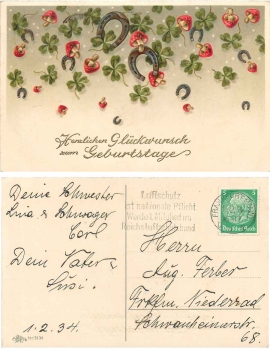 Herzlichen Glückwunsch
zum Geburtstage
Deine Schwester
Lina & Schwager
Carl
Dein Vater &
Susi.
1.2.34.
Luftschutz
ist nationale Pflicht
Werdet Mitglied im
Reichsluftschutzbund
Deutsches Reich
Herrn
Aug. Ferber
Frkfm. Niederrad
Schwanheimerstr.
68.